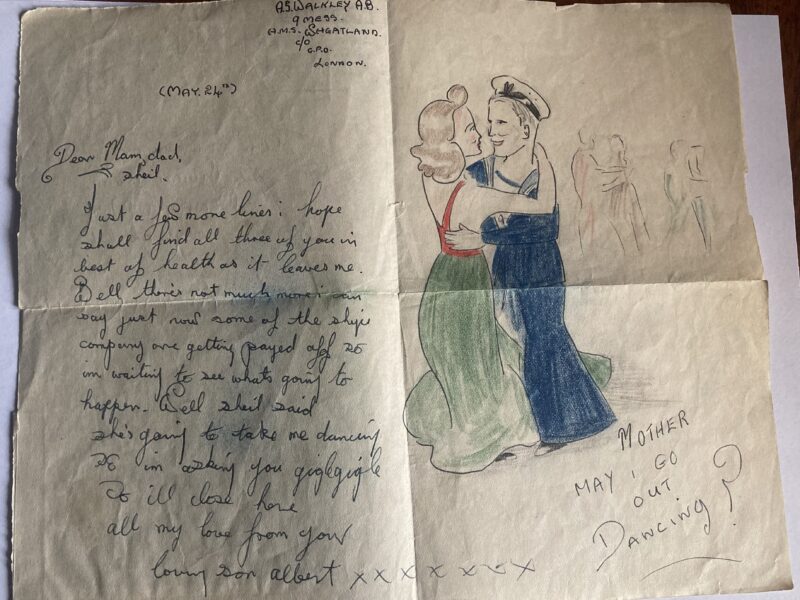 A.S. WALKLEY A.B.
9 MESS.
H.M.S. SHEATLAND.
C/O
G.P.O.
LONDON.
(MAY. 24TH)
Dear Mam, dad,
Sheil.
Just a few more lines i hope
shall find all three of you in
best of health as it leaves me.
Well there's not much more i can
say just now some of the ships
company are getting payed off so
im waiting to see whats going to
happen. Well sheil said
she's going to take me dancing
so im asking you giglegigle
So ill close here
all my love from your
loving son albert x x x x x x x
MOTHER
MAY I GO
OUT
DANCING?